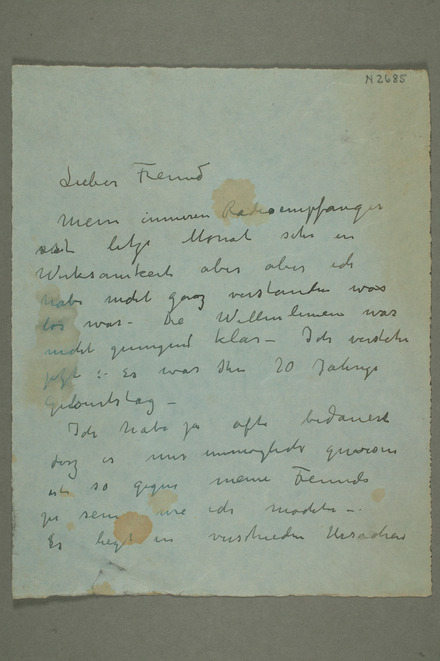 N2685
Lieber Freund
Mein inneren Radioempfanger
letzte Monat sehr in
Wirksamkeit aber aber ich
habe nicht ganz verstanden was
los war – Die Wellenlinien war
nicht genugend klar – Ich verstehe
jetzt :– Es war Ihr 70 Jahrige
Geburtstag –
Ich habe ja oft bedauert
dasz es mir unmöglich
ist so gegen meine Freunde
zu sein wie ich mochte –.
Es liegt in verschieden Ursachen